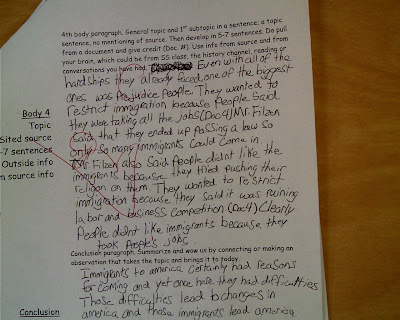 4th body paragraph. General topic and 1st subtopic in a sentence; a topic
sentence, no mentioning of source. Then develop in 5-7 sentences. Do pull
from a document and give credit (Doc #). Use info from source and from
your brain, which could be from SS class, the history channel, reading or
conversations you have had. Even with all of the
hardships they already faced, one of the biggest
ones was prejudice people. They wanted to
restrict immigration because people said
they were taking all the jobs (Doc 4) Mr. Filzen
Said that they ended up passing a law so
only so many immigrants could come in.
Mr Filzen also said people didnt like the
immigrants because they tried pushing their
religion on them. They wanted to restrict
immigration because they said it was ruining
labor and business competition (Doc 4) Clearly
People didnt like immigrants because they
took people's jobs.
Body 4
Topic
Sited source
-7 sentences
Outside info
m source info
Conclusion paragraph. Summarize and wow us by connecting or making an
observation that takes the topic and brings it to today.
Immigrants to america certainly had reasons
for coming and yet once here they had difficulties
Those difficulties lead to changes in
america and those immigrants lead america
Conclusion